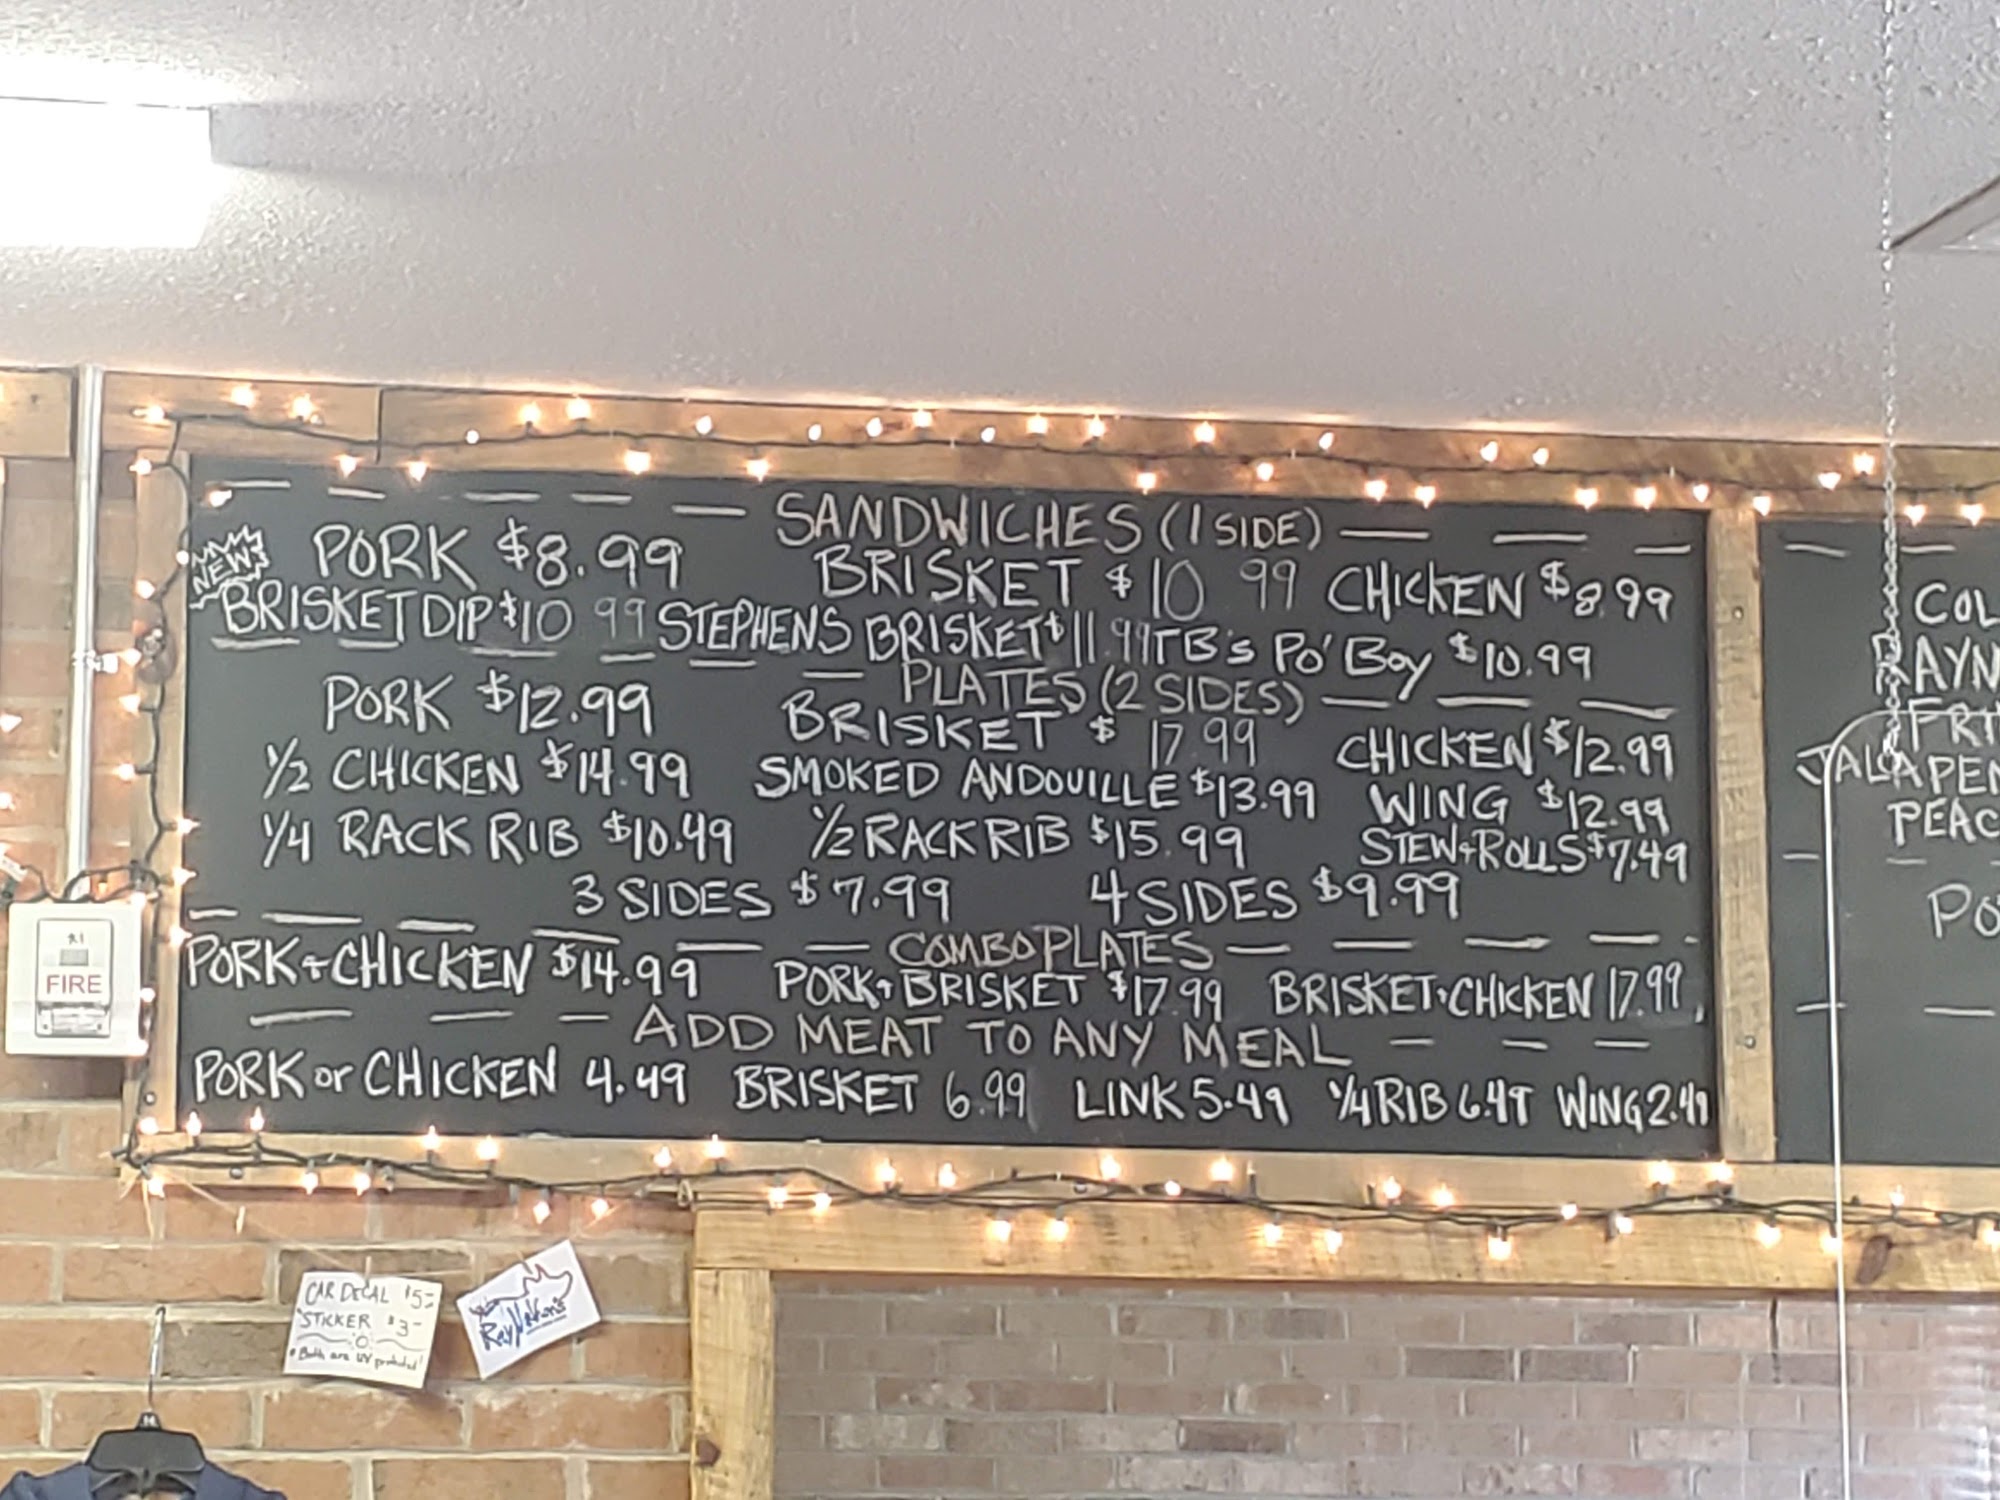 SANDWICHES (1 SIDE)
NEW!
PORK $8.99 BRISKET $10 99 CHICKEN $8.99
BRISKET DIP $10 99 STEPHENS BRISKET $11.99 TB's Po'Boy $10.99
PLATES (2 SIDES)
PORK $12.99 BRISKET $17 99 CHICKEN $12.99
1/2 CHICKEN $14.99 SMOKED ANDOUILLE $13.99 WING $12.99
1/4 RACK RIB $10.49 1/2 RACK RIB $15.99 STEW+ROLLS $7.49
3 SIDES $7.99 4 SIDES $9.99
COMBO PLATES
PORK+CHICKEN $14.99 PORK+BRISKET $17.99 BRISKET+CHICKEN 17.99
ADD MEAT TO ANY MEAL
PORK or CHICKEN 4.49 BRISKET 6.99 LINK 5.49 1/4 RIB 6.49 WING 2.49
COL
AYN
FRI
JALAPEN
PEAC
PO
FIRE
CAR DECAL $5-
STICKER $3-
*Both are UV protected!